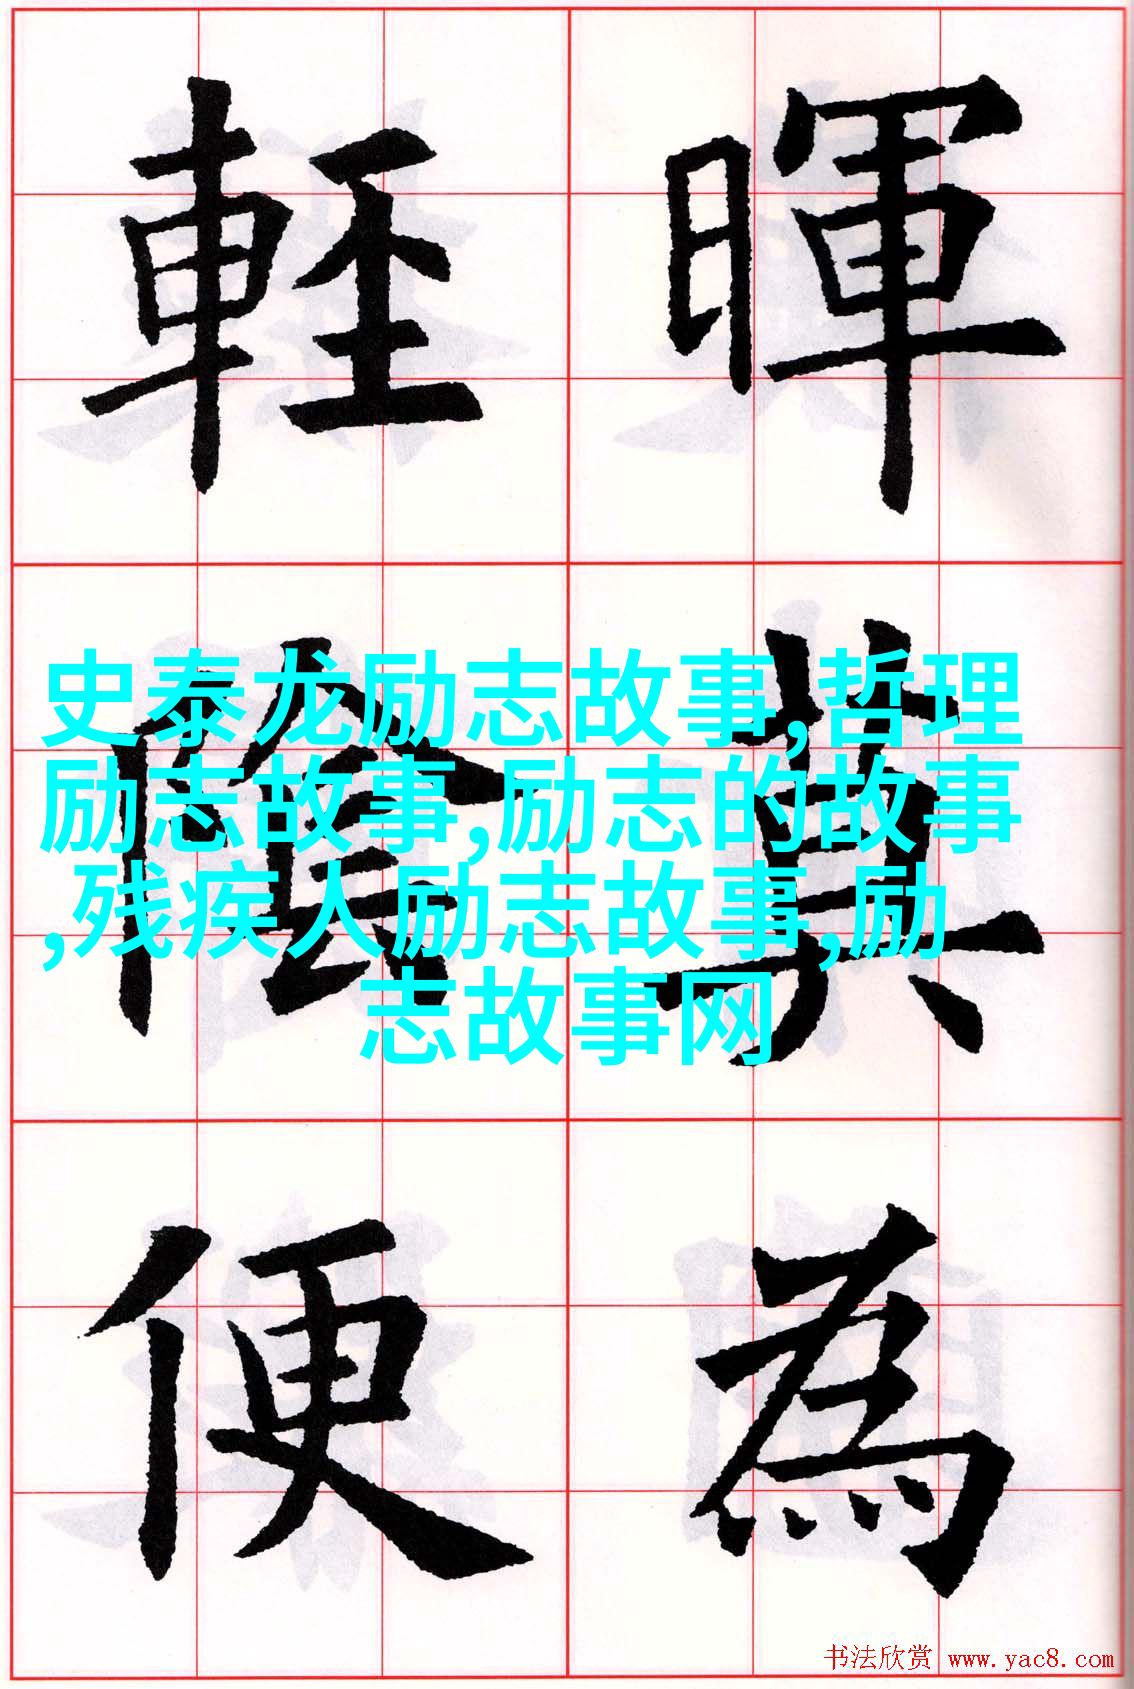 暉莫為
輕陰便
史泰龙励志故事,哲理
励志故事,励志的故事
,残疾人励志故事,励
志故事网
书法欣赏 www.yac8.com